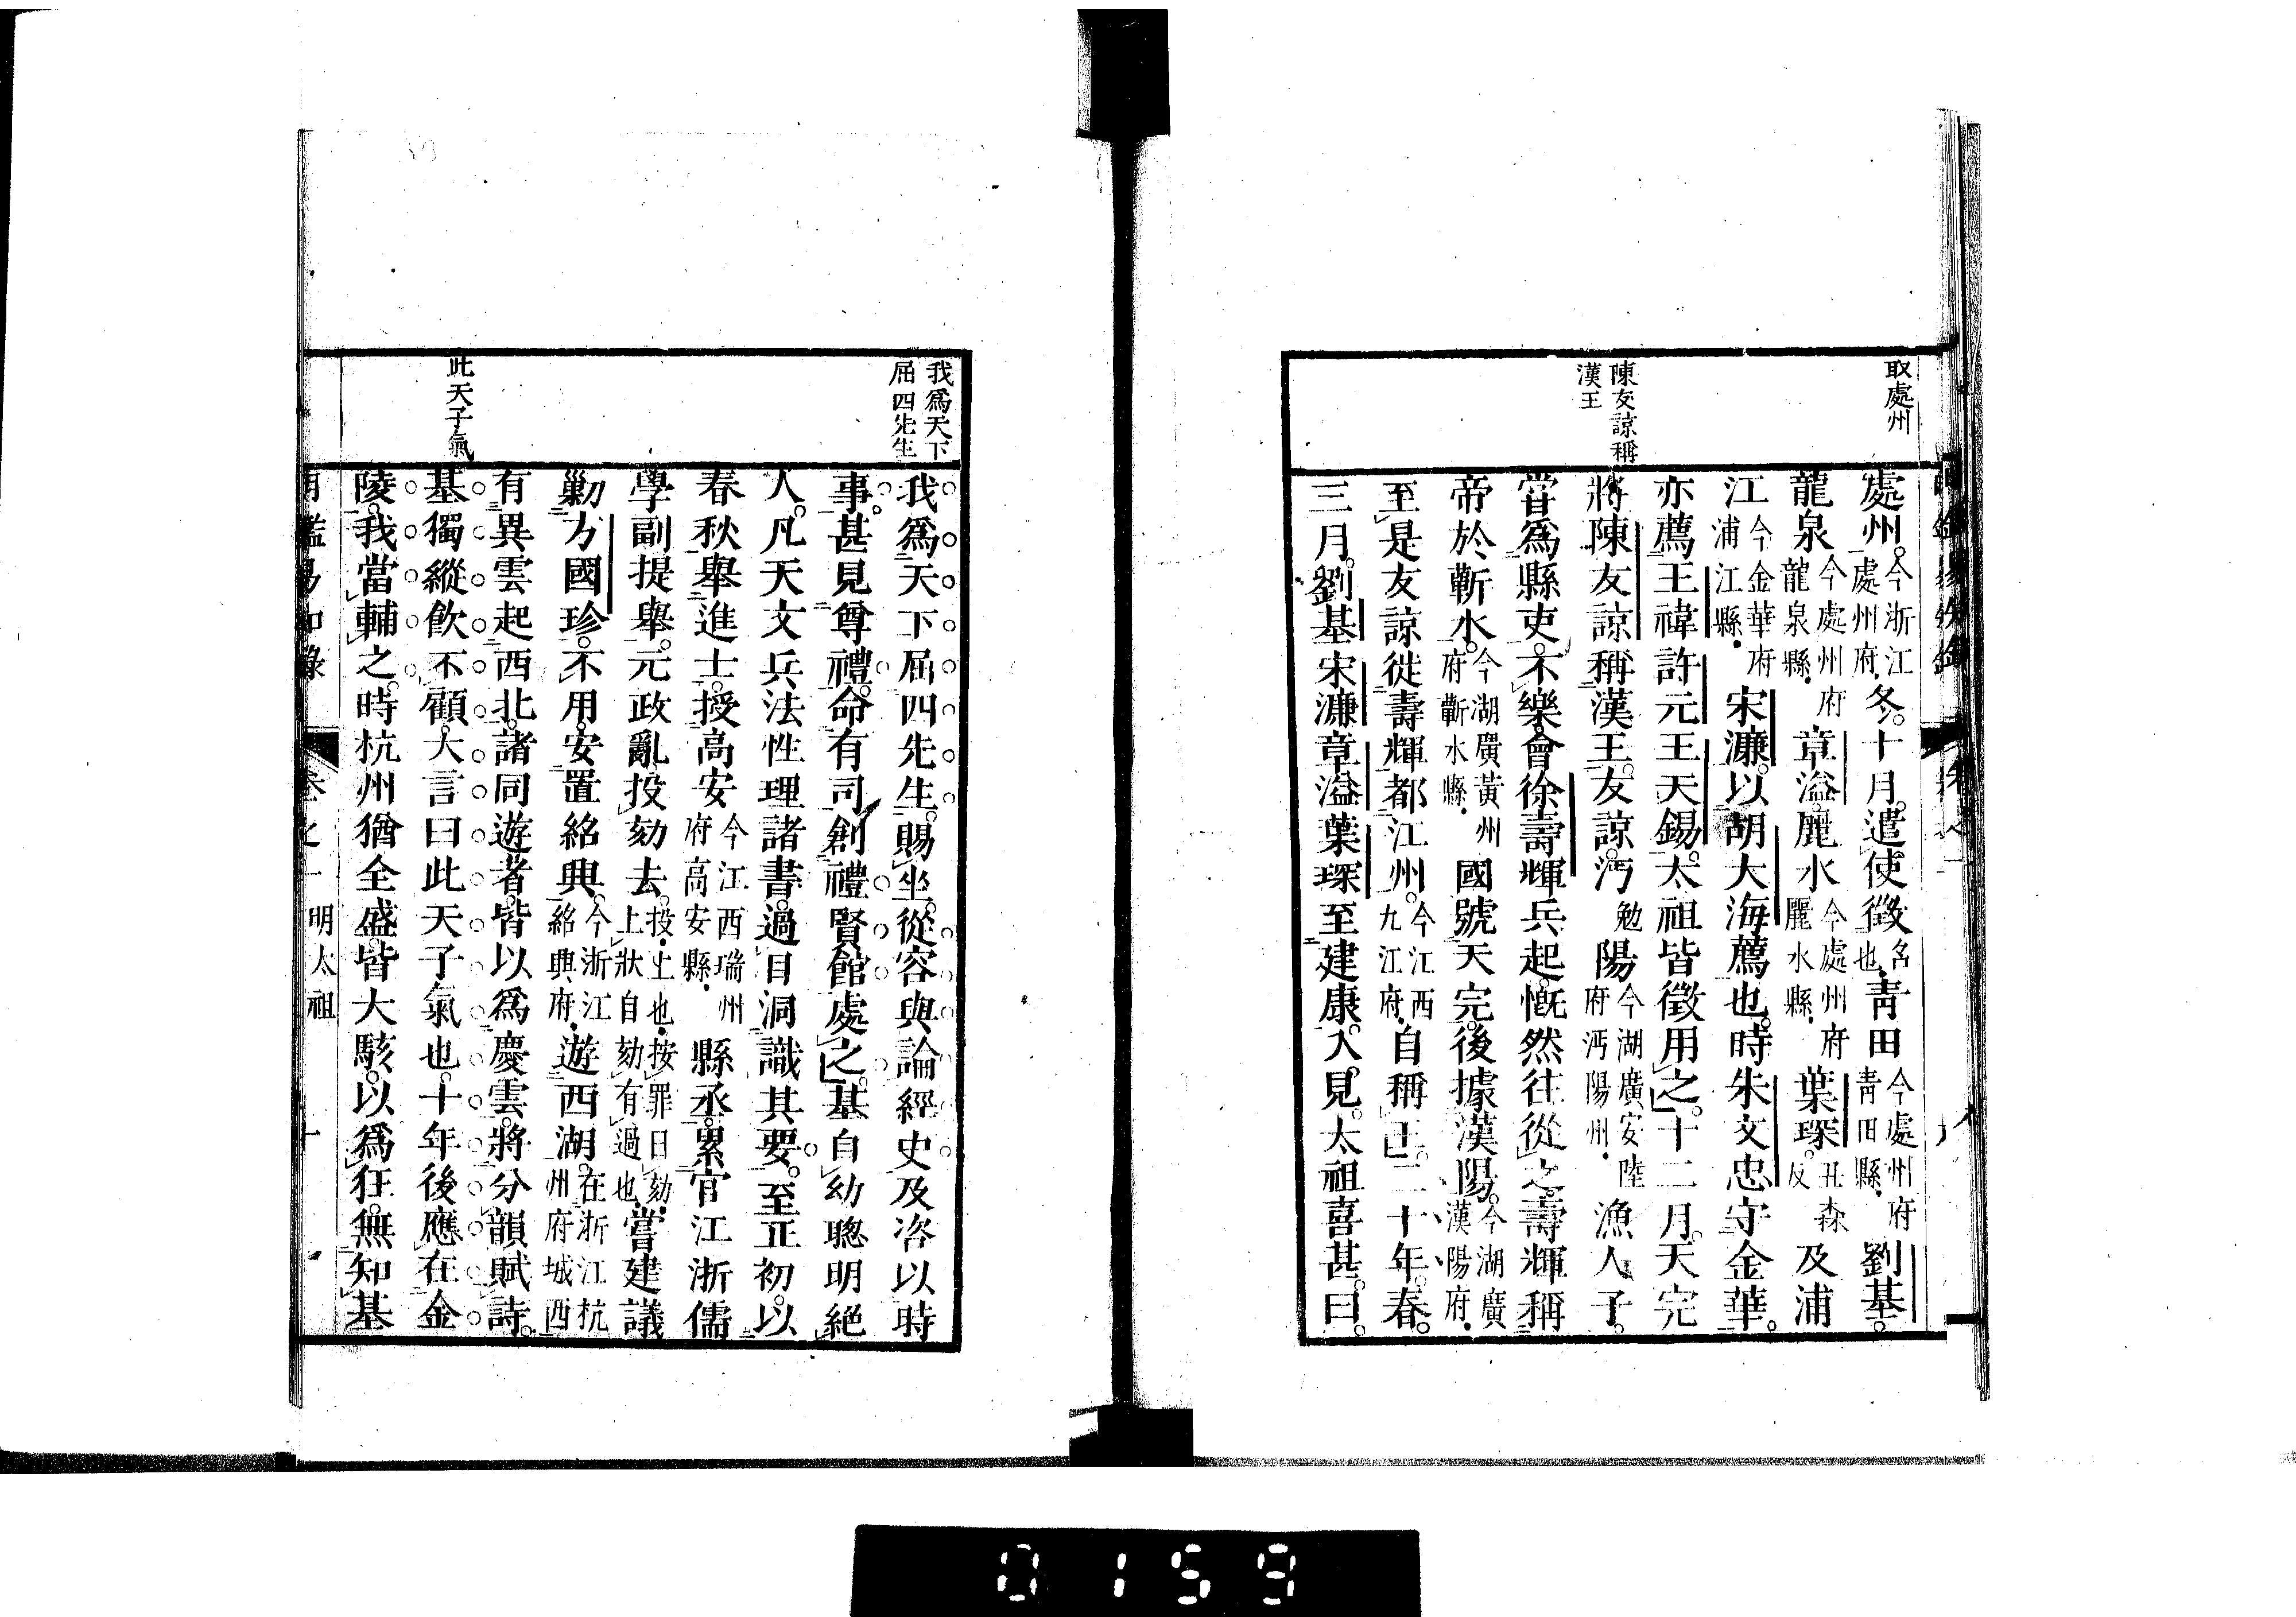 取處州
處州。今浙江處州府冬。十月。遣使徵名也青田今處州府青田縣劉基。
龍泉今處州府龍泉縣章溢。麗水今處州府麗水縣葉琛。丑森反及浦
江今金華府浦江縣宋濂。以胡大海薦也。時朱文忠守金華。
亦薦王禕許元王天錫。太祖皆徵用之。十二月。天完
陳友諒稱漢王
將陳友諒稱漢王。友諒。沔勉陽今湖廣安陸府沔陽州漁人子。
嘗爲縣吏。不樂。會徐壽輝兵起。慨然往從之。壽輝稱
帝於蘄水。今湖廣黃州府蘄水縣國號天完。後據漢陽。今湖廣漢陽府
至是友諒徙壽輝都江州。今江西九江府自稱王。二十年。春。
三月。劉基宋濂章溢葉琛至建康。入見。太祖喜甚。曰。
我爲天下屈四先生
我爲天下屈四先生。賜坐。從容與論經史及咨以時
事。甚見尊禮。命有司創禮賢館處之。基自幼聰明絕
人。凡天文兵法性理諸書。過目洞識其要。至正初。以
春秋舉進士。授高安今江西瑞州府高安縣縣丞。累官江浙儒
學副提舉。元政亂投劾去。投上也按罪曰劾上狀自劾有過也嘗建議
勦方國珍。不用。安置紹興。今浙江紹興府遊西湖。在浙江杭州府城西
有異雲起西北。諸同遊者。皆以爲慶雲。將分韻賦詩。
此天子氣
基獨縱飲不顧。大言曰此天子氣也。十年後應在金
陵。我當輔之。時杭州猶全盛。皆大駭。以爲狂。無知基
明鑑易知錄 卷之一 明太祖 十
0159